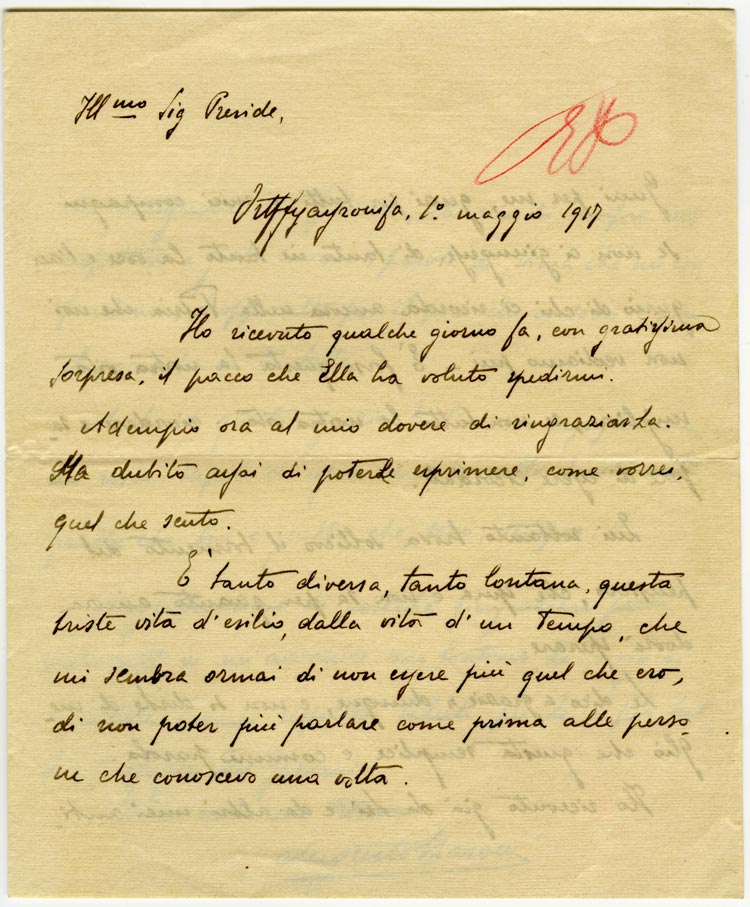 Ill mo Sig Preside,
1.° maggio 1917
Ho ricevuto qualche giorno fa, con gratissima
sorpresa, il pacco che Ella ha voluto spedirmi.
Adempio ora al mio dovere di ringraziarLa.
Ma dubito assai di poterle esprimere, come vorrei,
quel che sento.
È tanto diversa, tanto lontana, questa
triste vita d'esilio, dalla vita d'un tempo, che
mi sembra ormai di non essere più quel che ero,
di non poter più parlare come prima alle perso
ne che conoscevo una volta.